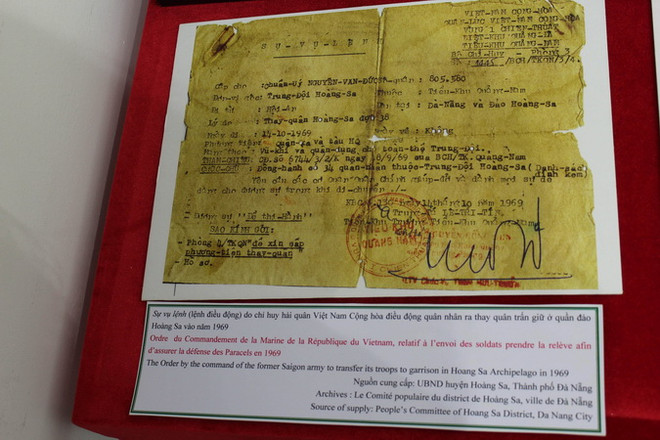 VIỆT-NAM CỘNG-HÒA
QUÂN-LỰC VIỆT-NAM CỘNG-HÒA
VÙNG I CHIẾN-THUẬT
TIỂU-KHU QUẢNG-NAM
SỰ-VỤ-LỆNH
Cấp cho :chuẩn-Uý NGUYỄN-VĂN-ĐỨC quân : 805.580
Trung-Đội Hoàng-Sa thuộc : Tiểu-Khu Quảng-Nam
Đi từ : Hội-An Đà-Nẵng và Đảo Hoàng-Sa
Lý do : Thay-quân Hoàng-Sa đợt 38
Ngày đi : 14-10-1969 Không
Quân-xa và tàu
Vũ-khí và quân-dụng cho toàn-thể Trung-Đội.
6744/3/2/K ngày 9/69 của BCH/TK. Quảng-Nam
Đồng-hành có 34 quân-nhân thuộc-Trung-Đội Hoàng-Sa( Danh-sách
đính kèm)
trong khi di-chuyển
10 năm 1969
Trung-Tá LÊ-TRÍ-TÍN
TIỂU KHU
QUẢNG NAM
BAO KÍNH GỞI:
- Phòng 4/TKQN để xin cấp
phương-tiện thay-quân
- Hồ sơ.
Sự vụ lệnh (lệnh điều động) do chỉ huy hải quân Việt Nam Cộng hòa điều động quân nhân ra thay quân trấn giữ ở quần đảo
Hoàng Sa vào năm 1969
Ordre du Commandement de la Marine de la République du Vietnam, relatif à l'envoi des soldats prendre la relève afin
d'assurer la défense des Paracels en 1969
The Order by the command of the former Saigon army to transfer its troops to garrison in Hoang Sa Archipelago in 1969
Nguồn cung cấp: UBND huyện Hoàng Sa, Thành phố Đà Nẵng
Archives : Le Comité populaire du district de Hoàng Sa, ville de Đà Nẵng
Source of supply: People's Committee of Hoang Sa District, Da Nang City